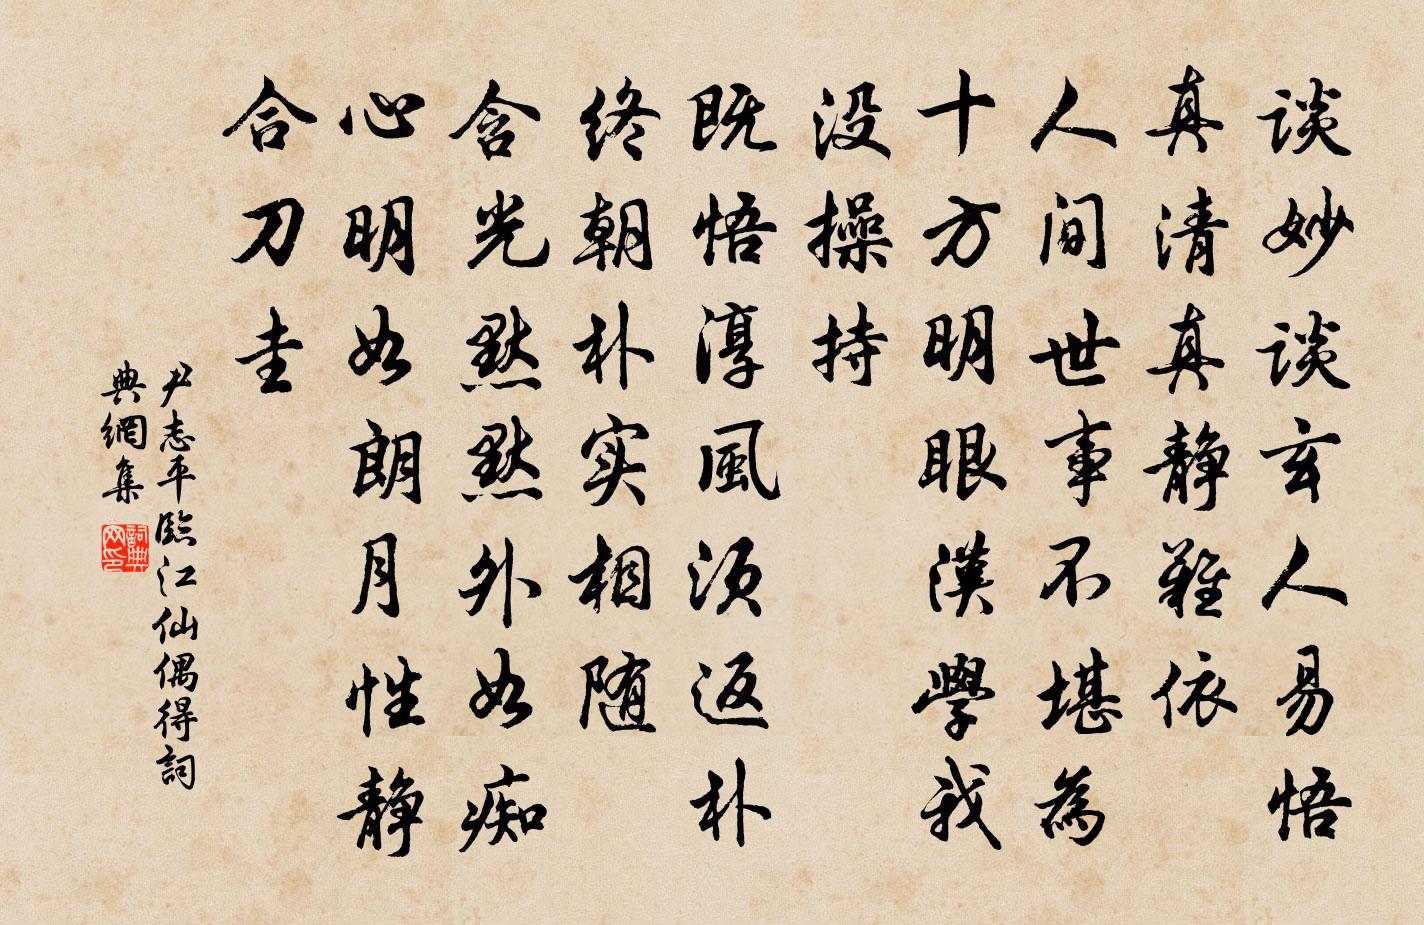 谈妙谈玄人易悟
真清真静难依
人间世事不堪為
十方明眼漢學我
没操持
既悟淳風须返朴
终朝朴实相随
含光默默外如痴
心明如朗月性静
合刀圭
尹志平臨江仙偶得詞
典網集
詞典
网印